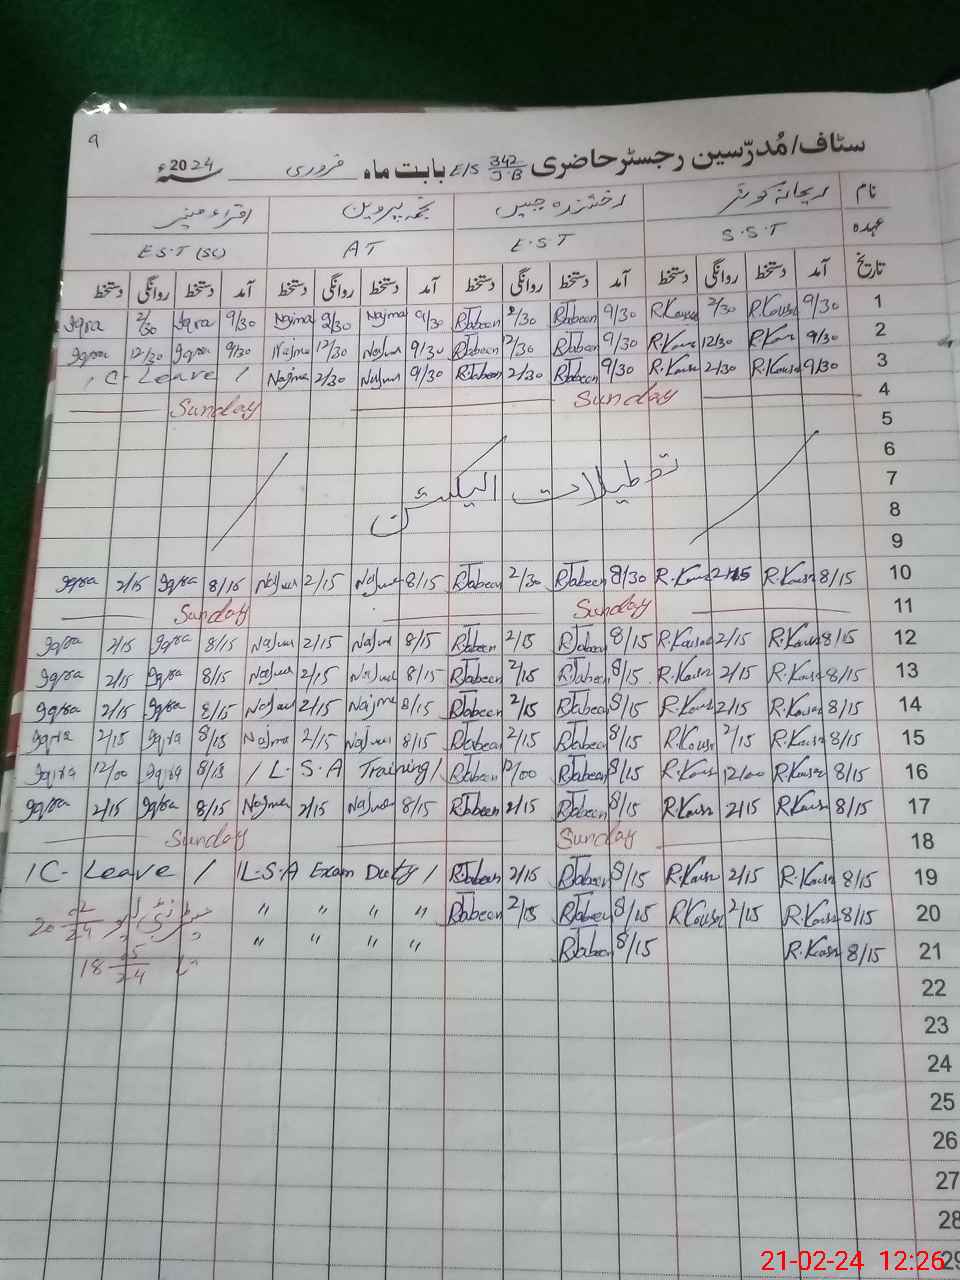 9
سٹاف/مُدرّسین رجسٹر حاضری E/S 342/J·B بابت ماہ فروری سنہ 2024ء
نام ریحانہ کوثر رخشندہ جبیں نجمہ پروین اقراء منیر
عہدہ S.S.T E.S.T AT E.S.T (SC)
تاریخ آمد دستخط روانگی دستخط آمد دستخط روانگی دستخط آمد دستخط روانگی دستخط آمد دستخط روانگی دستخط
1 9/30 R.Kousar 2/30 R.Kousar 9/30 RJabeen 2/30 RJabeen 9/30 Najma 2/30 Najma 9/30 Iqra 2/30 Iqra
2 9/30 R.Kousar 12/30 R.Kousar 9/30 RJabeen 12/30 RJabeen 9/30 Najma 12/30 Najma 9/30 Iqra 12/30 Iqra
3 9/30 R.Kousar 2/30 R.Kousar 9/30 RJabeen 2/30 RJabeen 9/30 Najma 2/30 Najma / C- Leave /
4 Sunday Sunday
5
6
7 تعطیلات الیکشن
8
9
10 8/15 R.Kousar 2/15 R.Kousar 8/30 RJabeen 2/30 RJabeen 8/15 Najma 2/15 Najma 8/15 Iqra 2/15 Iqra
11 Sunday Sunday
12 8/15 R.Kousar 2/15 R.Kousar 8/15 RJabeen 2/15 RJabeen 8/15 Najma 2/15 Najma 8/15 Iqra 2/15 Iqra
13 8/15 R.Kousar 2/15 R.Kousar 8/15 RJabeen 2/15 RJabeen 8/15 Najma 2/15 Najma 8/15 Iqra 2/15 Iqra
14 8/15 R.Kousar 2/15 R.Kousar 8/15 RJabeen 2/15 RJabeen 8/15 Najma 2/15 Najma 8/15 Iqra 2/15 Iqra
15 8/15 R.Kousar 2/15 R.Kousar 8/15 RJabeen 2/15 RJabeen 8/15 Najma 2/15 Najma 8/15 Iqra 2/15 Iqra
16 8/15 R.Kousar 12/00 R.Kousar 8/15 RJabeen 12/00 RJabeen / L.S.A Training / 8/15 Iqra 12/00 Iqra
17 8/15 R.Kousar 2/15 R.Kousar 8/15 RJabeen 2/15 RJabeen 8/15 Najma 2/15 Najma 8/15 Iqra 2/15 Iqra
18 Sunday Sunday
19 8/15 R.Kousar 2/15 R.Kousar 8/15 RJabeen 2/15 RJabeen / L.S.A Exam Duty / / C- Leave /
20 8/15 R.Kousar 2/15 R.Kousar 8/15 RJabeen 2/15 RJabeen " " " " میٹرنٹی 20 02/24
21 8/15 R.Kousar 8/15 RJabeen " " " " تا 18 05/24
22
23
24
25
26
27
28
29
21-02-24 12:26